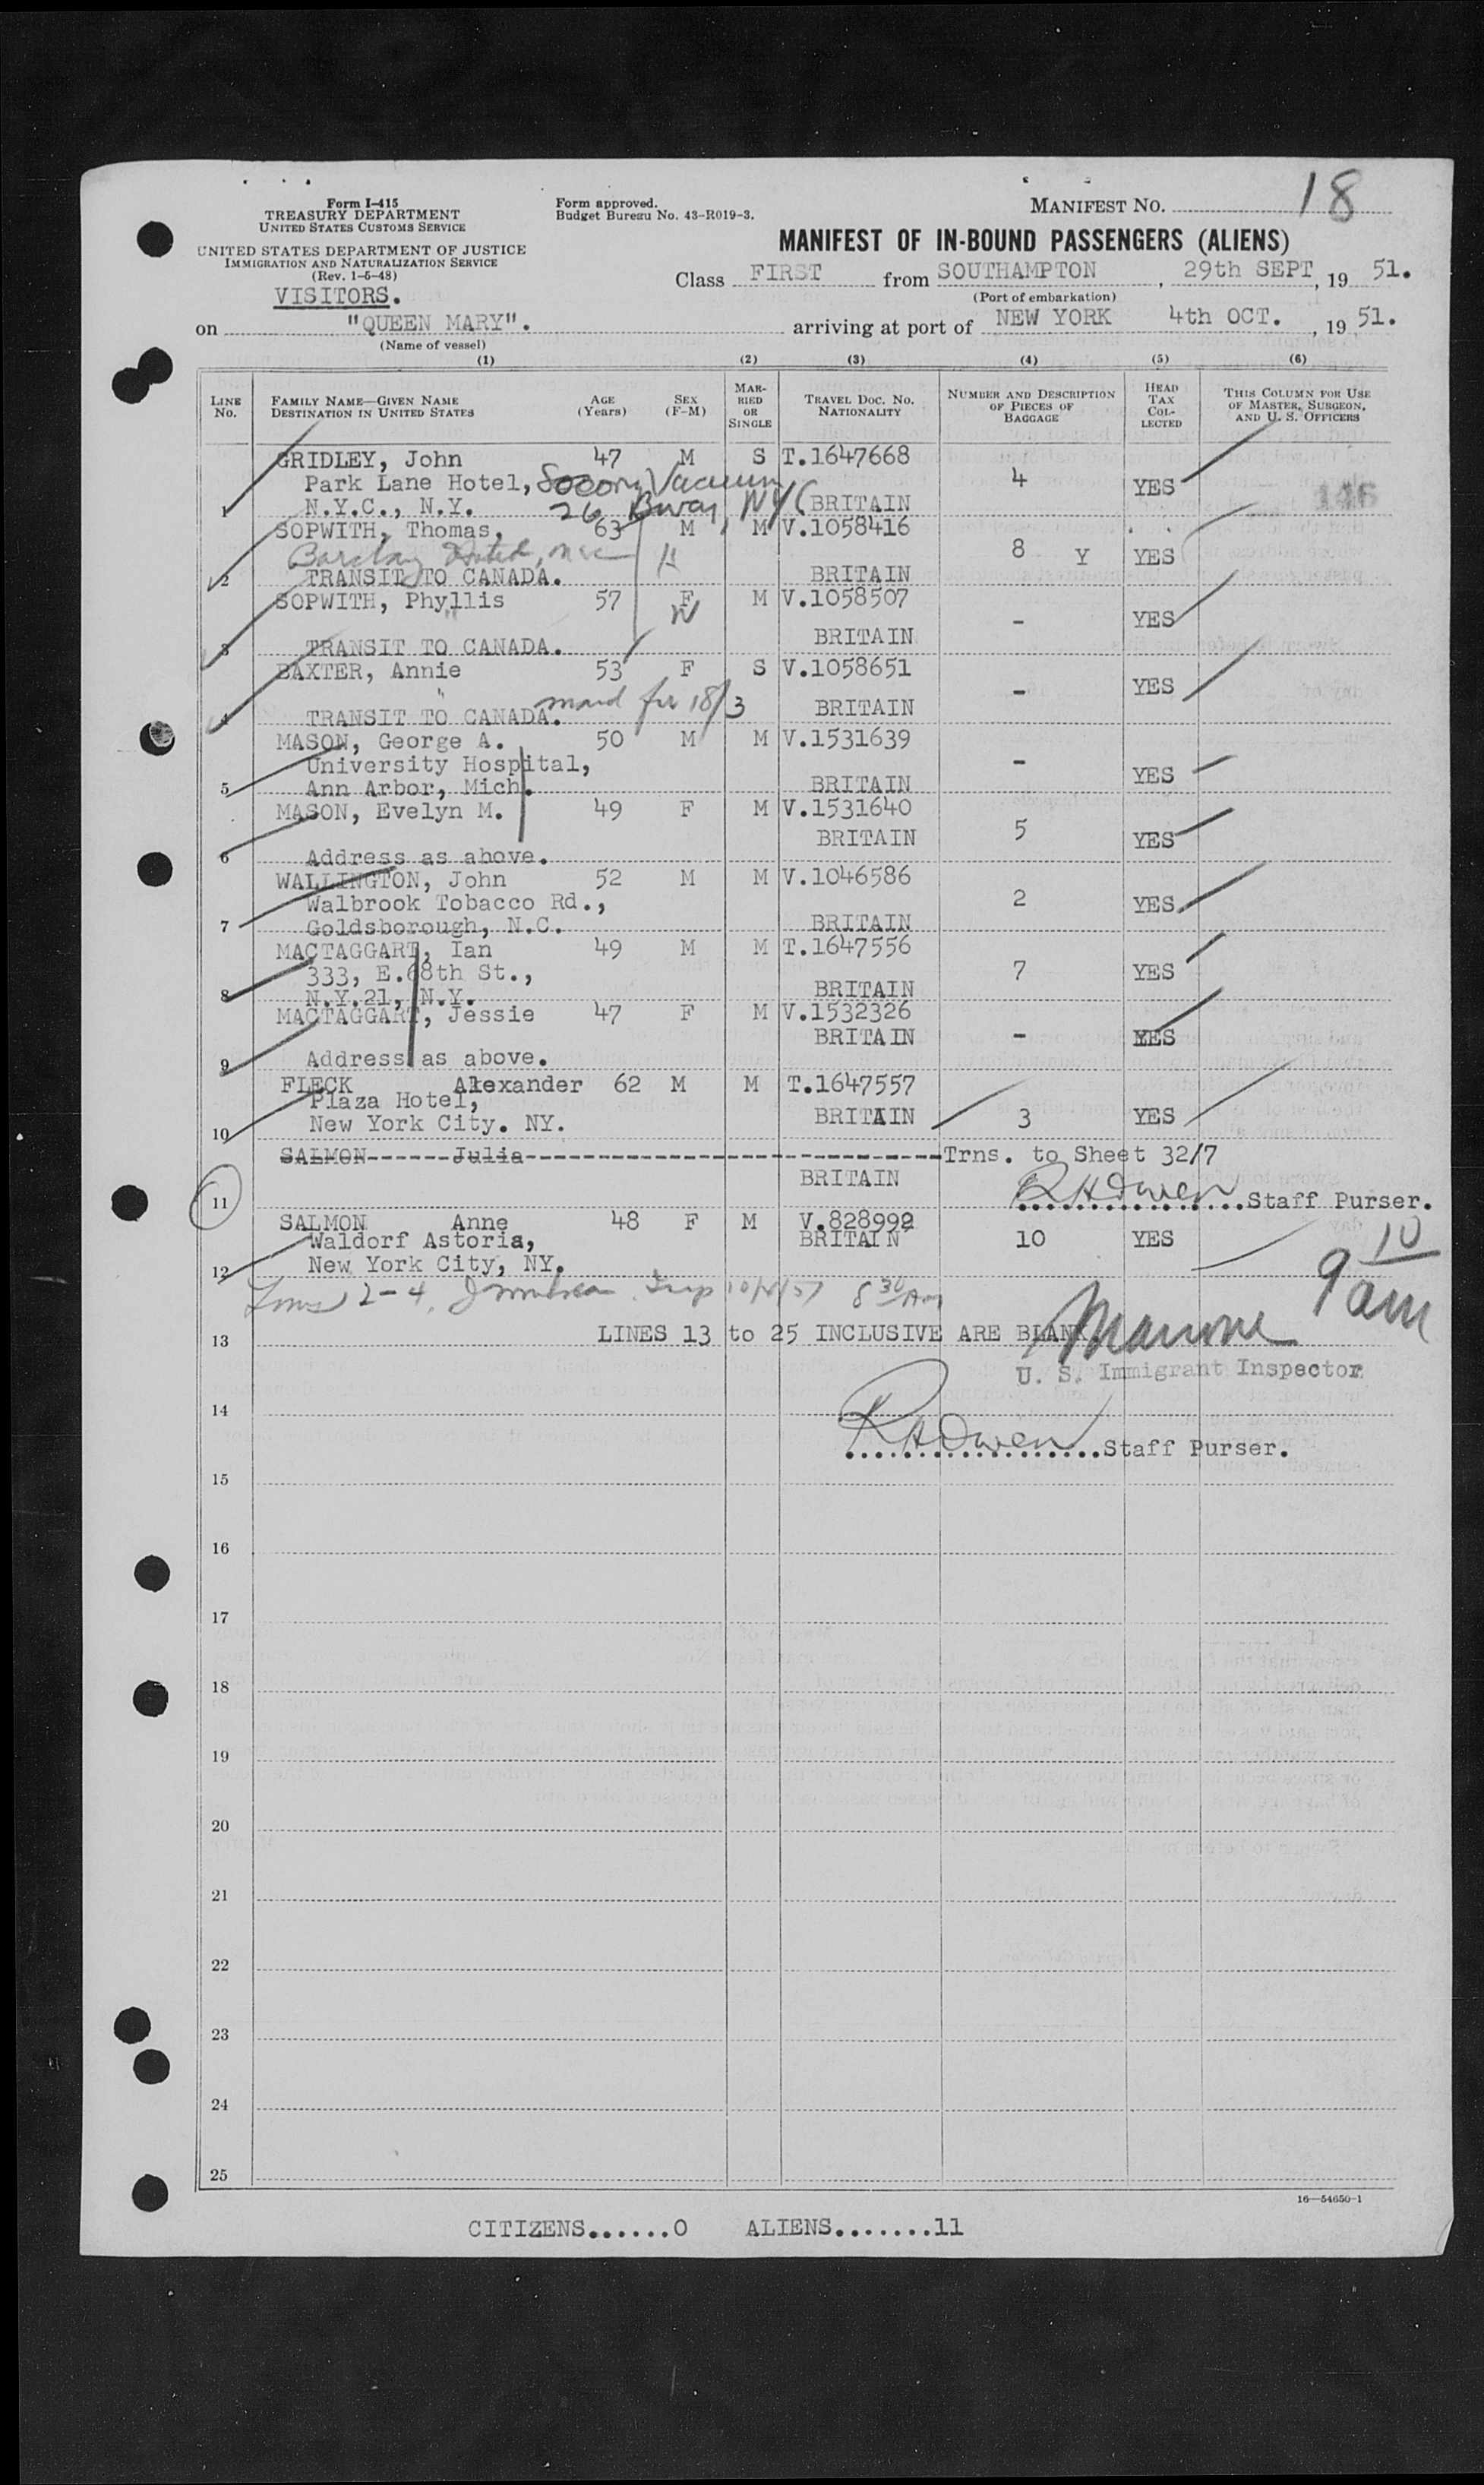 Form I-415
TREASURY DEPARTMENT
UNITED STATES CUSTOMS SERVICE
UNITED STATES DEPARTMENT OF JUSTICE
IMMIGRATION AND NATURALIZATION SERVICE
(Rev. 1-5-48)
VISITORS.
Form approved.
Budget Bureau No. 43-R019-3.
MANIFEST NO. 18
MANIFEST OF IN-BOUND PASSENGERS (ALIENS)
Class FIRST from SOUTHAMPTON, 29th SEPT, 19 51.
(Port of embarkation)
on "QUEEN MARY". arriving at port of NEW YORK 4th OCT., 19 51.
(Name of vessel)
(1) (2) (3) (4) (5) (6)
LINE No. FAMILY NAME—GIVEN NAME DESTINATION IN UNITED STATES AGE (Years) SEX (F-M) MARRIED OR SINGLE TRAVEL DOC. NO. NATIONALITY NUMBER AND DESCRIPTION OF PIECES OF BAGGAGE HEAD TAX COLLECTED THIS COLUMN FOR USE OF MASTER, SURGEON, AND U. S. OFFICERS
GRIDLEY, John 47 M S T.1647668
Park Lane Hotel, Socony Vacuum 4 YES 146
1 N.Y.C., N.Y. 26 Bway, NYC BRITAIN
SOPWITH, Thomas, 63 M M V.1058416
Barclay Hotel, NYC H 8 Y YES
2 TRANSIT TO CANADA. BRITAIN
SOPWITH, Phyllis 57 F M V.1058507
" W - YES
3 TRANSIT TO CANADA. BRITAIN
BAXTER, Annie 53 F S V.1058651
" maid for 18/3 - YES
4 TRANSIT TO CANADA. BRITAIN
MASON, George A. 50 M M V.1531639
University Hospital, - YES
5 Ann Arbor, Mich. BRITAIN
MASON, Evelyn M. 49 F M V.1531640
BRITAIN 5 YES
6 Address as above.
WALLINGTON, John 52 M M V.1046586
Walbrook Tobacco Rd., 2 YES
7 Goldsborough, N.C. BRITAIN
MACTAGGART, Ian 49 M M T.1647556
333, E.68th St., 7 YES
8 N.Y.21, N.Y. BRITAIN
MACTAGGART, Jessie 47 F M V.1532326
BRITAIN - YES
9 Address as above.
FLECK Alexander 62 M M T.1647557
Plaza Hotel,
10 New York City. NY. BRITAIN 3 YES
SALMON------Julia------------------------------Trns. to Sheet 32/7
BRITAIN
11 RHOwen Staff Purser.
SALMON Anne 48 F M V.828992
Waldorf Astoria, BRITAIN 10 YES
12 New York City, NY.
Lines 2-4, 8 30 AM 10 9 am
13 LINES 13 to 25 INCLUSIVE ARE BLANK
U. S. Immigrant Inspector
14
RHOwen Staff Purser.
15
16
17
18
19
20
21
22
23
24
25
16—54650-1
CITIZENS......0 ALIENS.......11